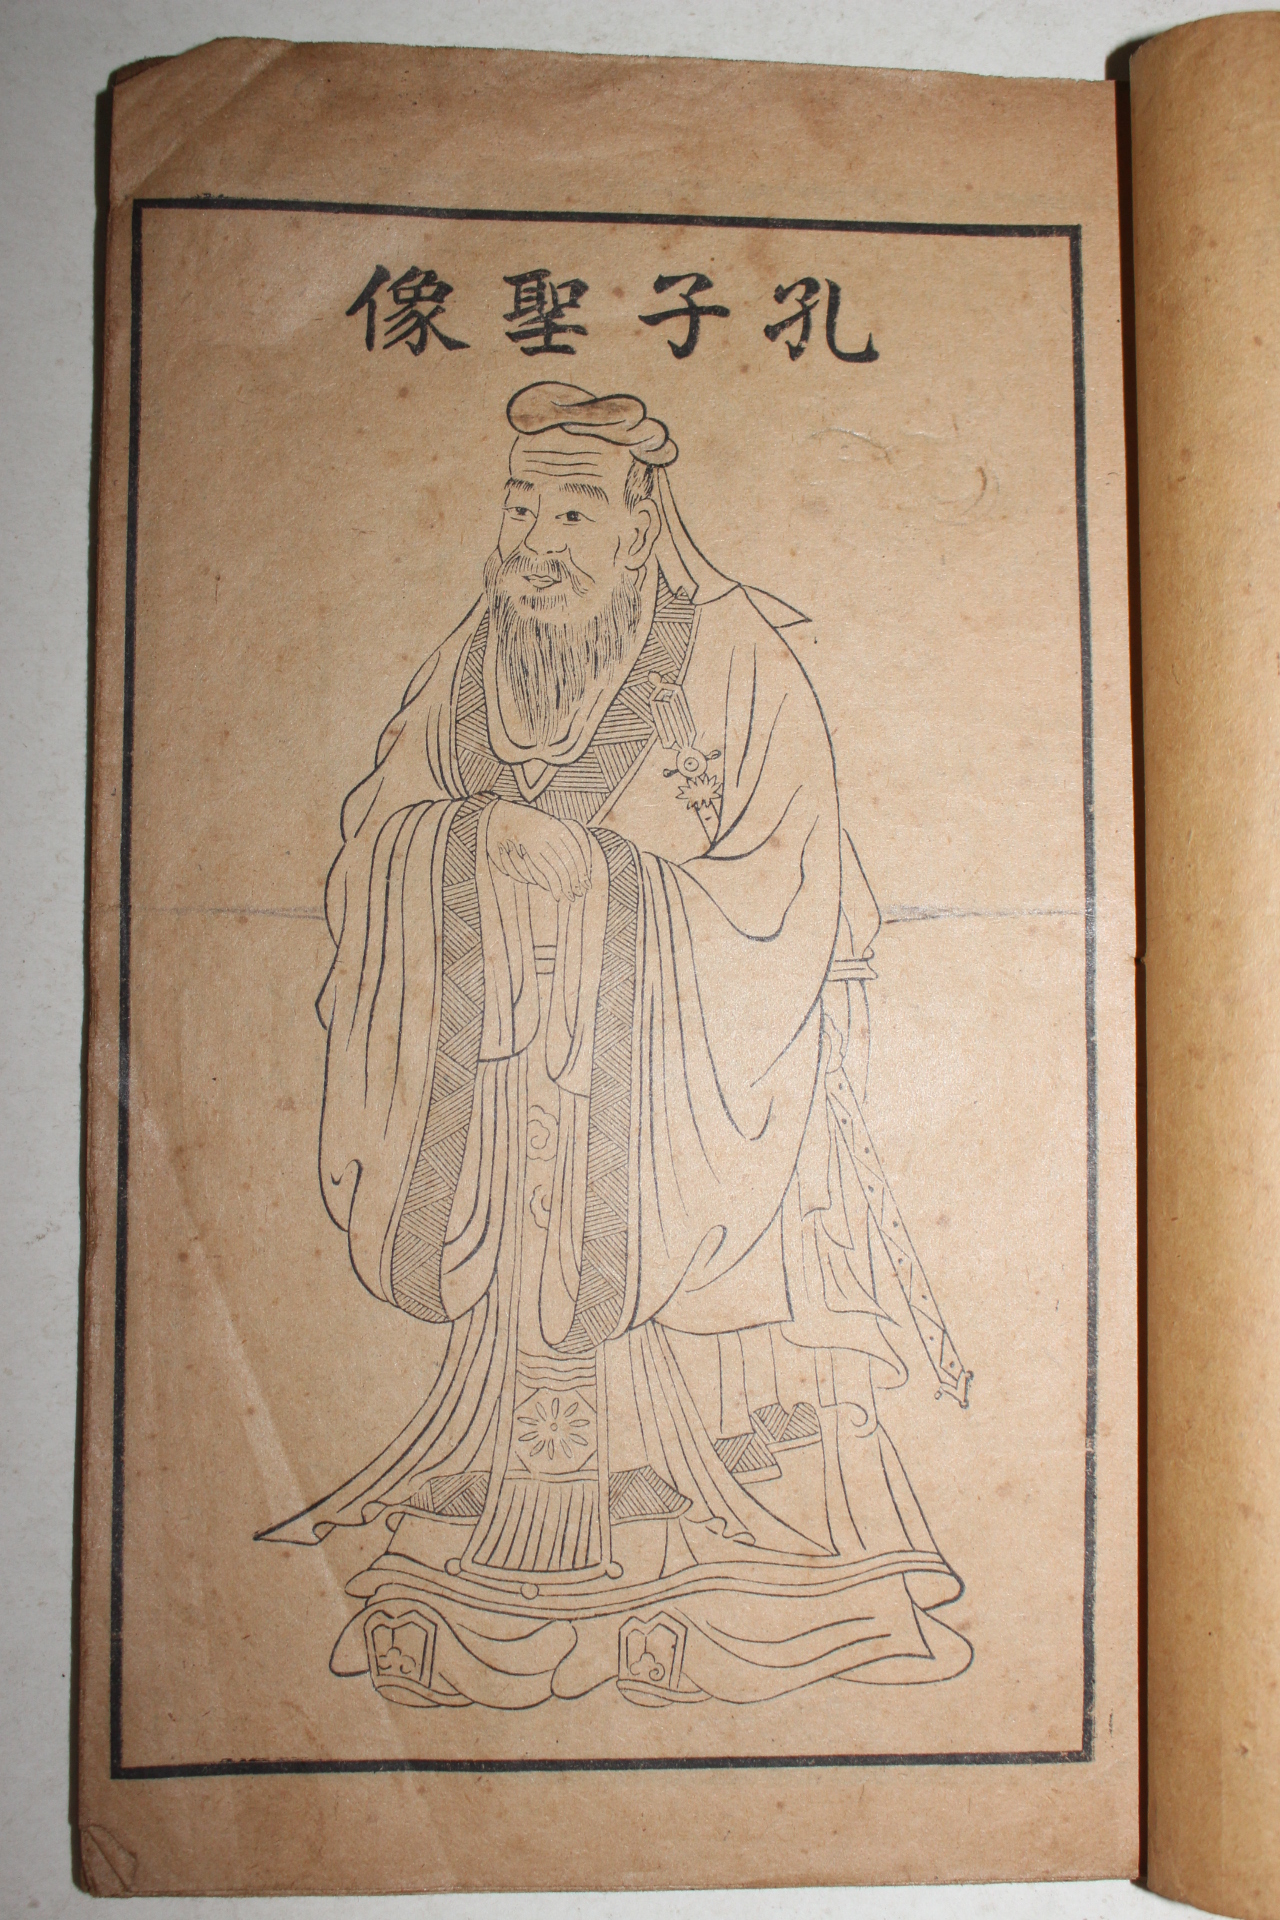 孔子聖像